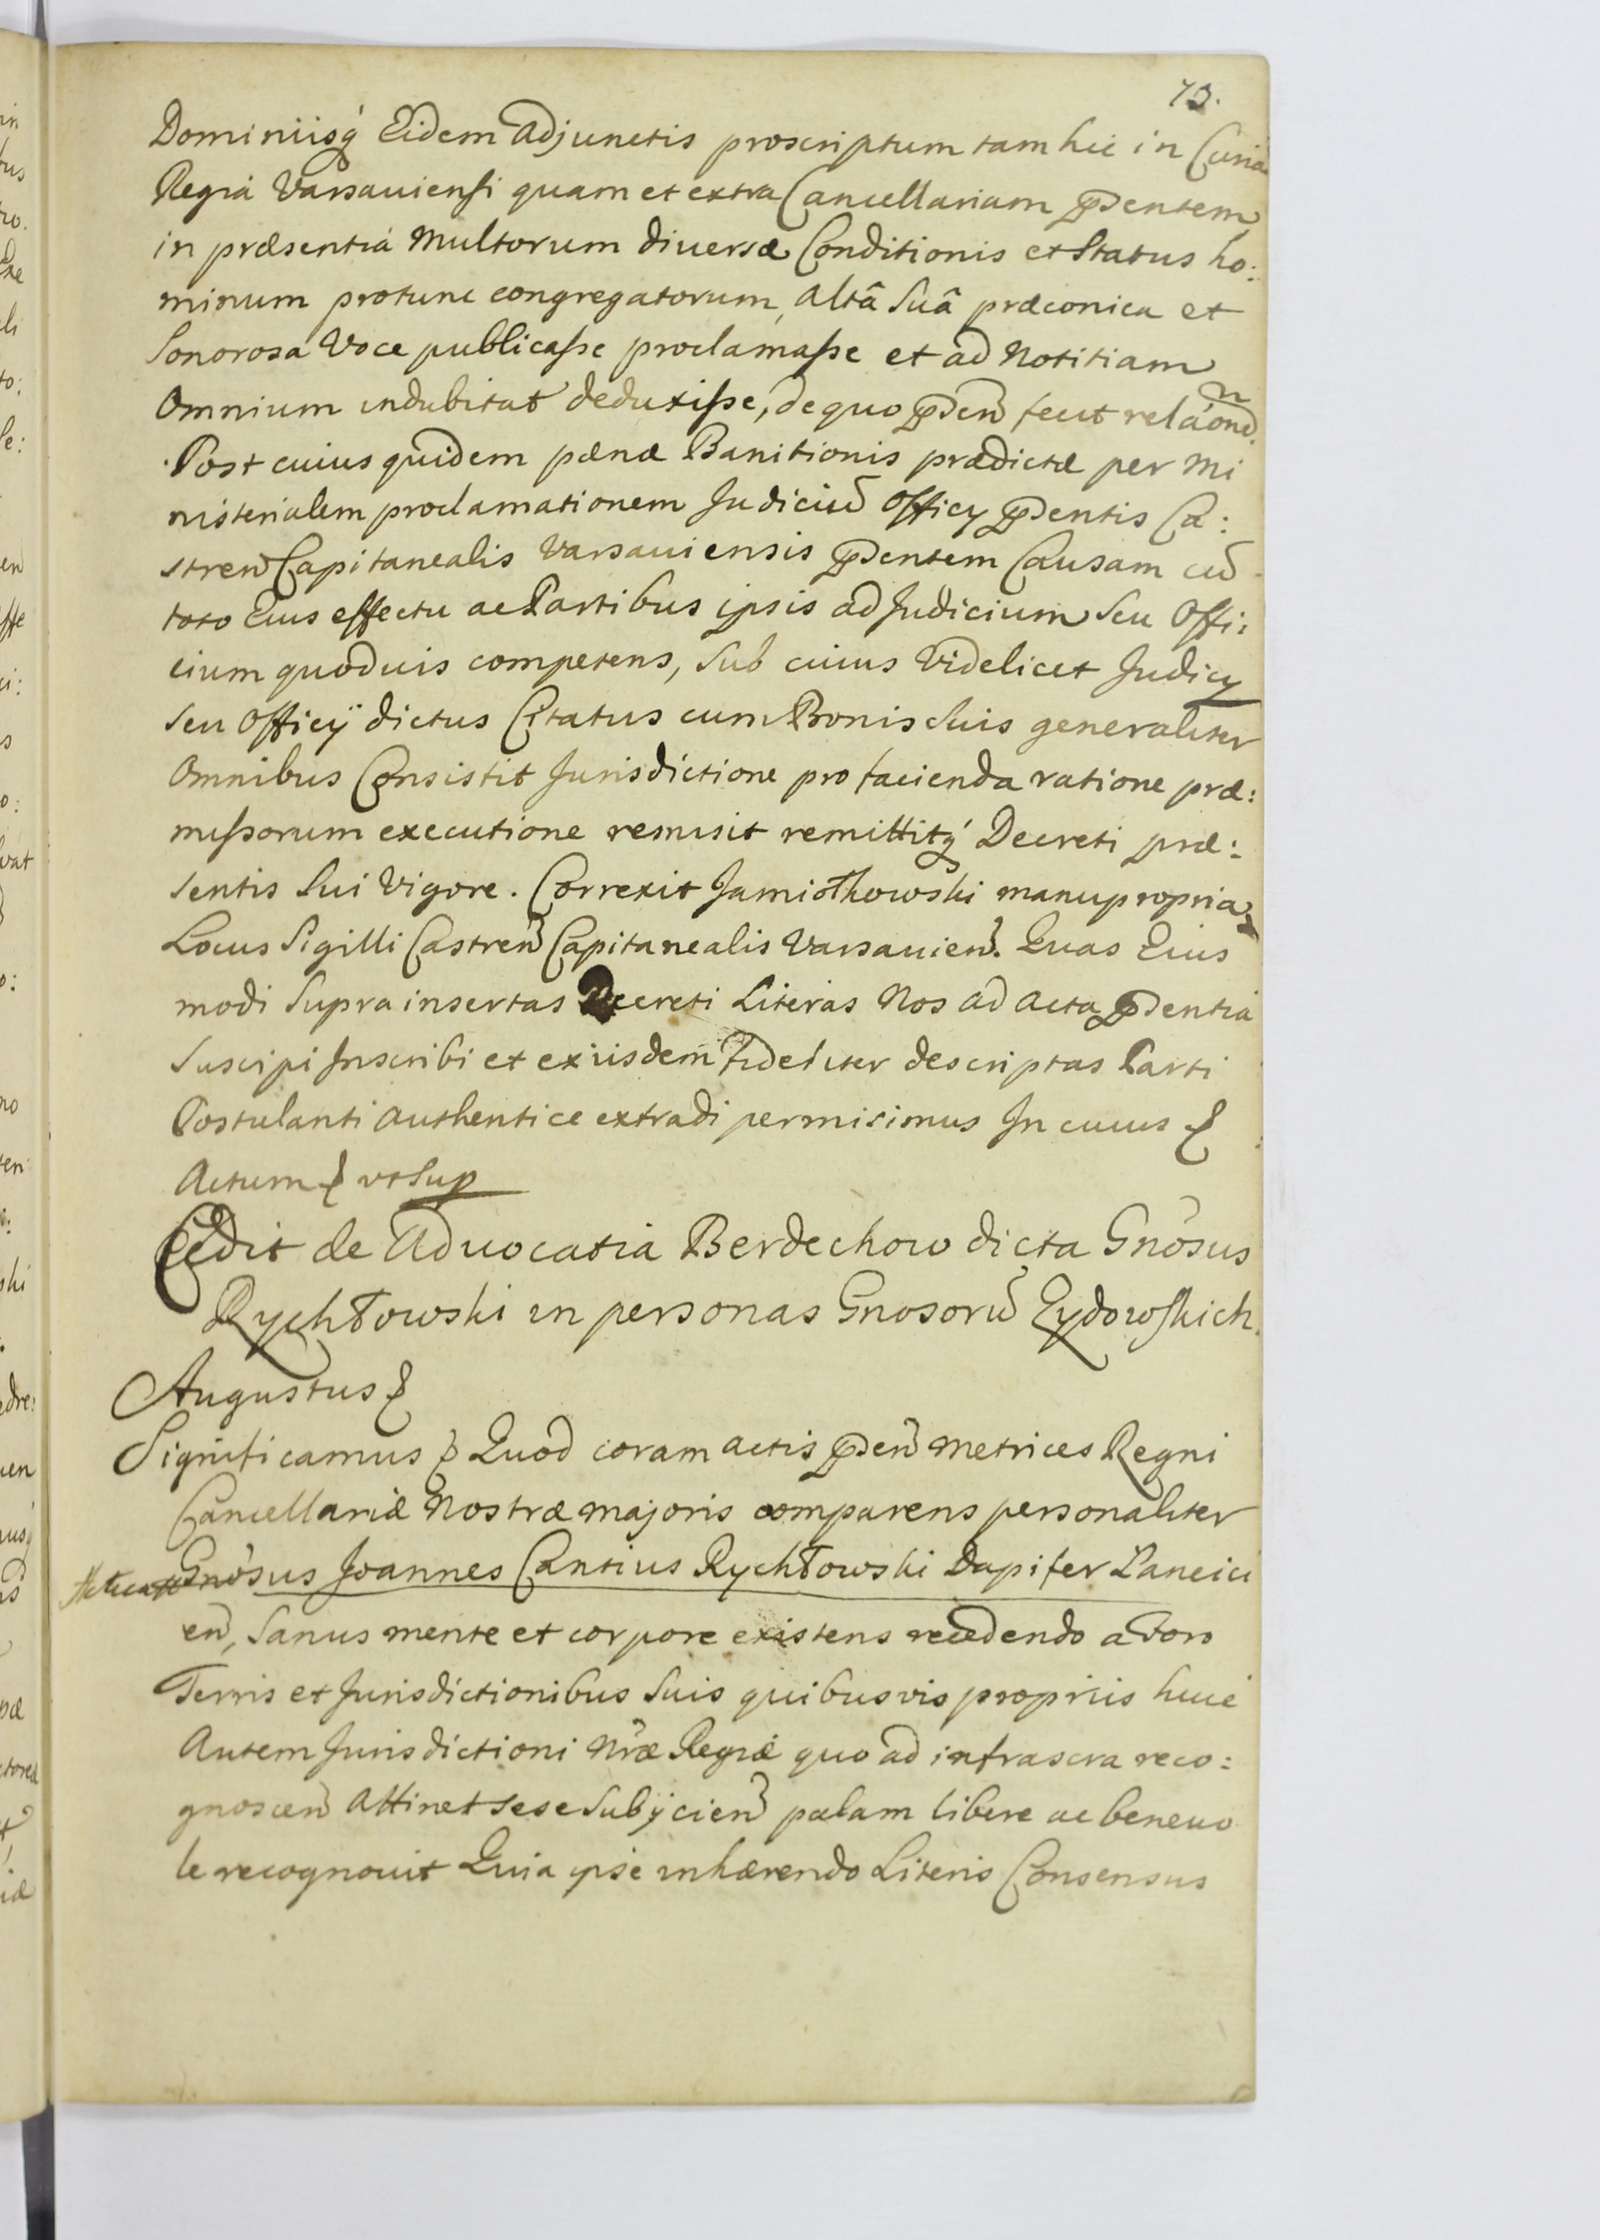 73.
Dominiisq́ Eidem Adjunctis proscriptum tam hic in Curia
Regiâ Varsauiensi quam et extra Cancellariam pñdentem
in præsentiâ Multorum diuersæ Conditionis et Status ho:
minum protunc congregatorum, altâ Suâ præconica et
Sonorosa Voce publicasse proclamasse et ad Notitiam
Omnium indubitat deduxisse, de quo pñden̄ fecit relaōne.
Post cuius quidem pænæ Banitionis prædictæ per Mi
nisterialem proclamationem Judiciū Officy pñdentis Ca:
stren̄ Capitanealis Varsauiensis pñdentem Causam cū
toto Eius effectu ac Partibus ipsis ad Judicium Seu Offi:
cium quoduis competens, Sub cuius Videlicet Judicy
Seu Officÿ dictus Citatus cum Bonis Suis generaliter
Omnibus Consistit Jurisdictione pro facienda ratione præ:
missorum executione remisit remittitq́ Decreti præ:
sentis Sui Vigore. Correxit Jamiołkowski manu propria
Locus Sigilli Castren̄ Capitanealis Varsauien̄. Quas Eius
modi Supra insertas Decreti Literas Nos ad acta pñdentia
Suscipi Inscribi et ex iisdem fideliter descriptas Parti
Postulanti authentice extradi permisimus In cuius &
Actum & vt Sup
Cedit de Aduocatia Berdechow dicta Gnōsus
Rychłowski in personas Gnosorū Zydowskich.
Augustus &
Significamus & Quod coram actis pñden̄ Metrices Regni
Cancellariæ Nostræ majoris comparens personaliter
Gnōsus Joannes Cantius Rychłowski Dapifer Lancici
en̄, Sanus mente et corpore existens recedendo a Foro
Terris et Jurisdictionibus Suis quibusvis propriis huic
Autem Jurisdictioni Nr̄æ Regiæ quo ad infrascra reco:
gnoscen̄ Attinet sese Subÿcien̄ palam libere ac beneuo
le recognouit Quia ipse inhærendo Literis Consensus